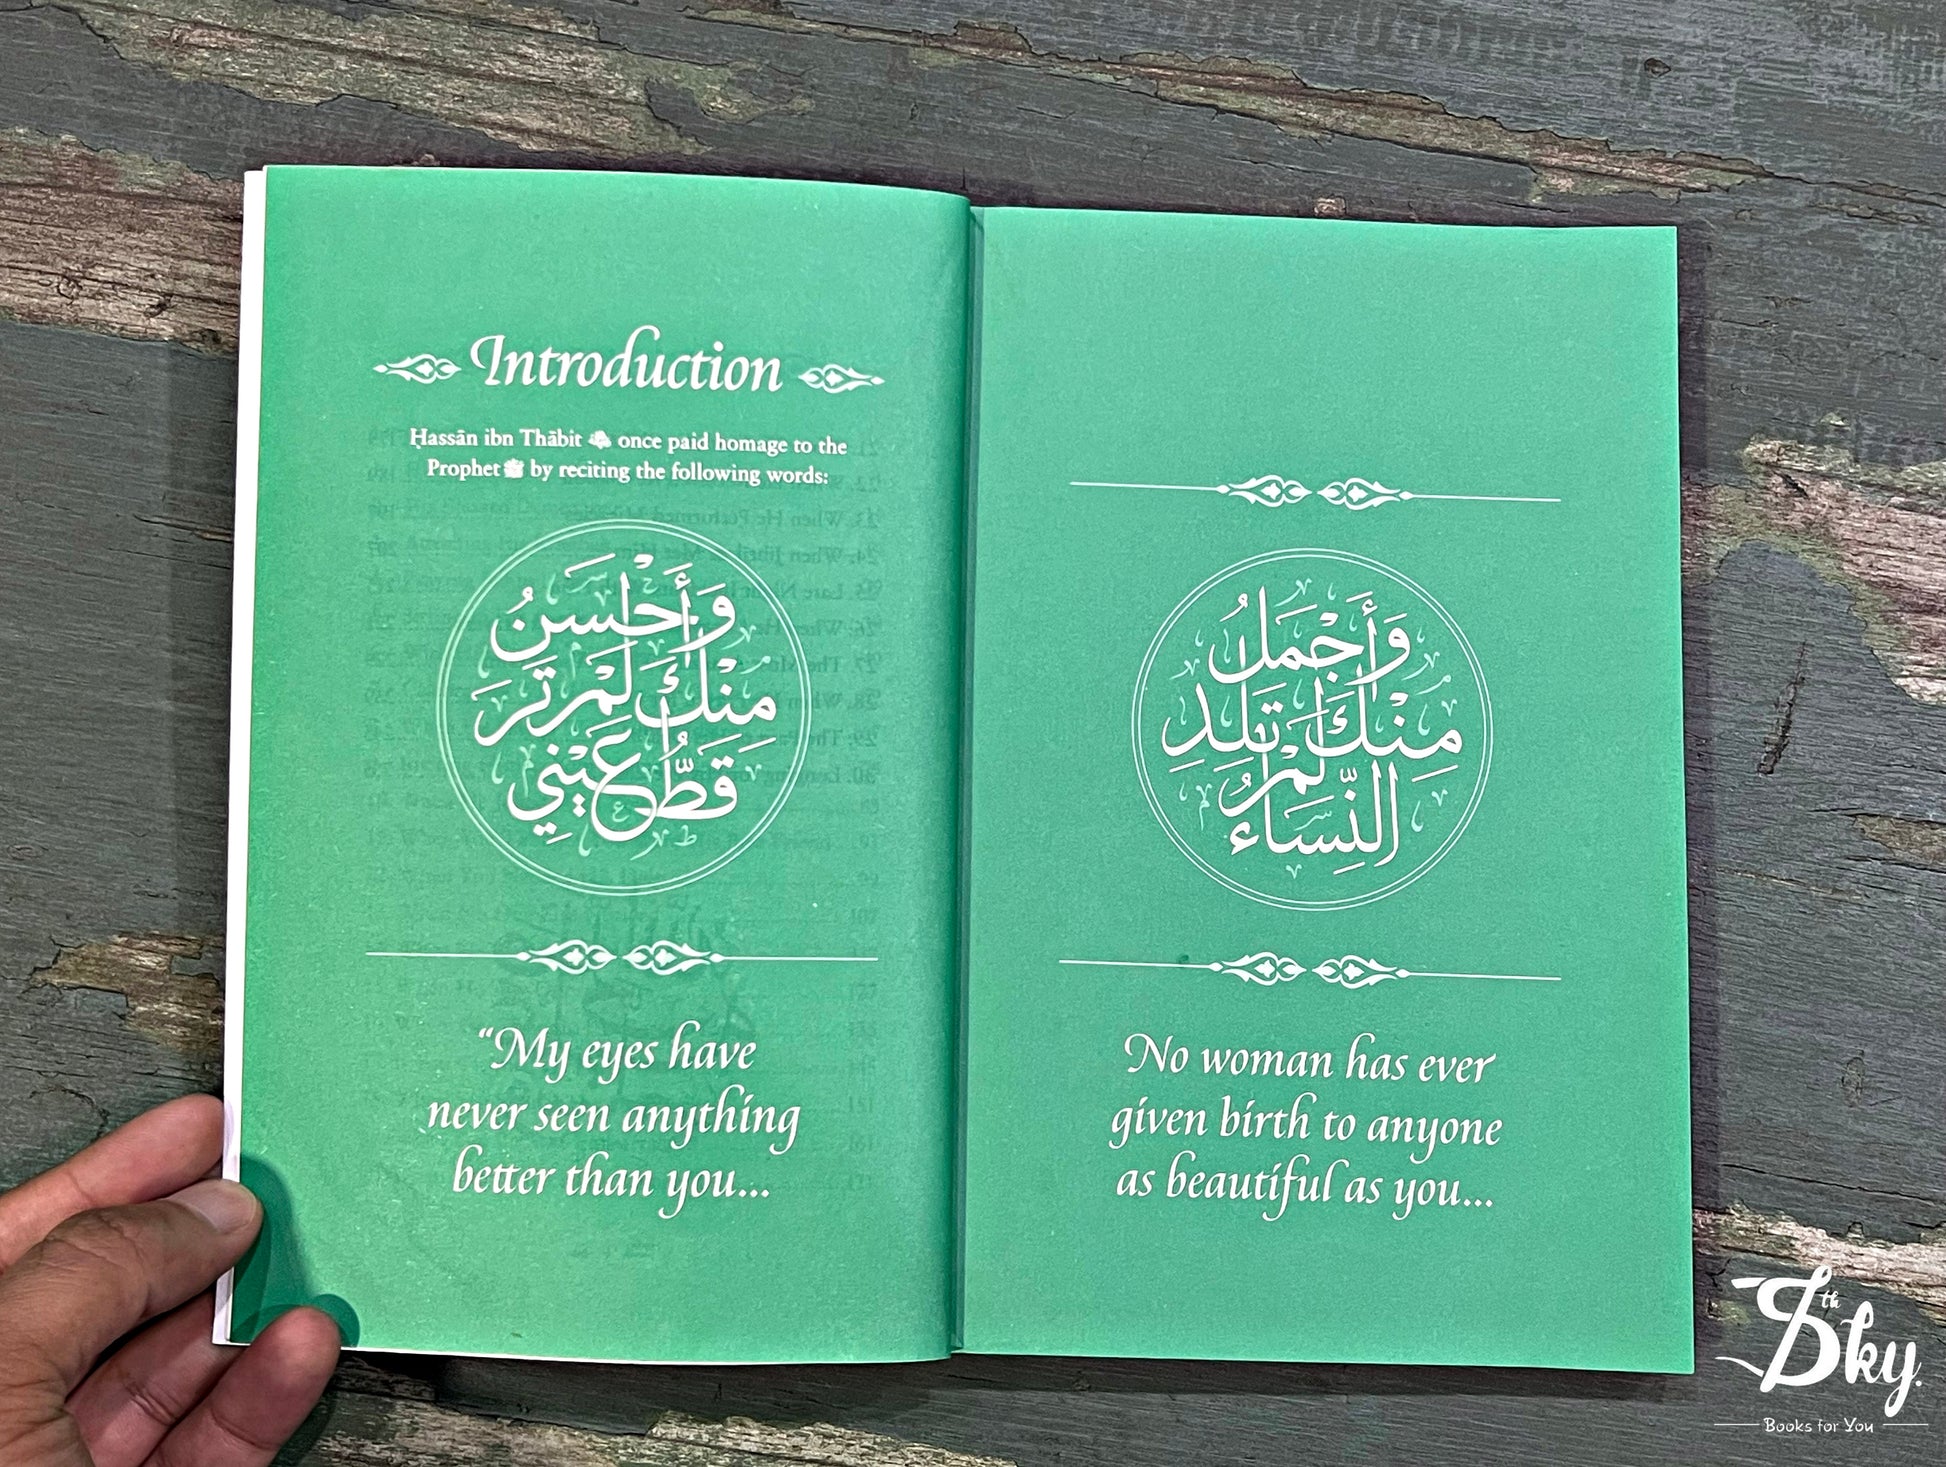 Introduction
Ḥassān ibn Thābit رضي الله عنه once paid homage to the
Prophet ﷺ by reciting the following words:
وَأَحْسَنُ
مِنْكَ لَمْ تَرَ
قَطُّ عَيْنِي
“My eyes have
never seen anything
better than you...
وَأَجْمَلُ
مِنْكَ لَمْ تَلِدِ
النِّسَاءُ
No woman has ever
given birth to anyone
as beautiful as you...
7th Sky.
Books for You